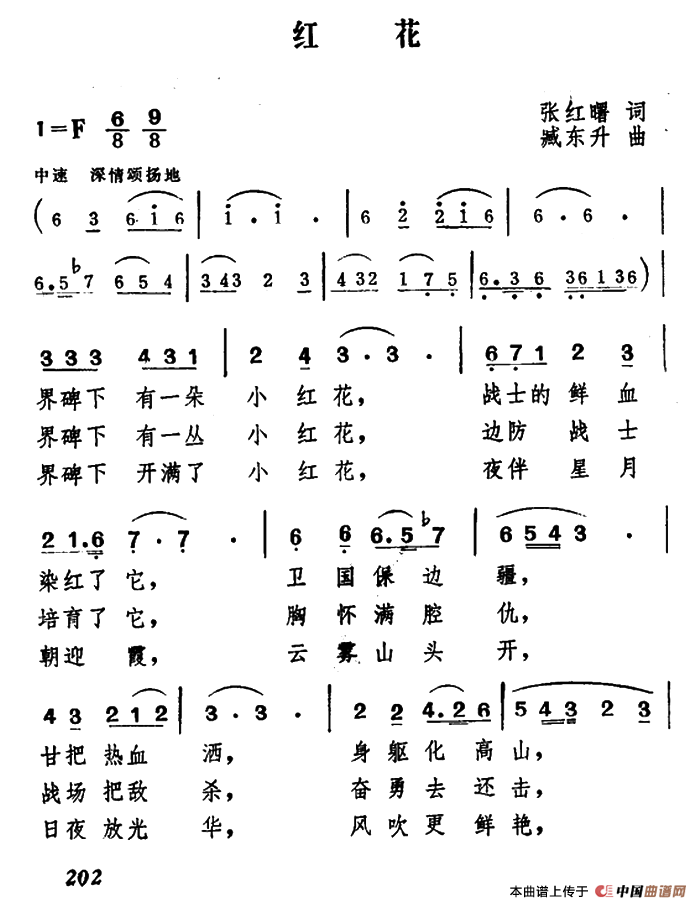 红 花
1=F 6/8 9/8
张红曙 词
臧东升 曲
中速 深情颂扬地
( 6 3 6 i 6 | i . i . | 6 2 2 i 6 | 6 . 6 . |
6.5 b7 6 5 4 | 3 4 3 2 3 | 4 3 2 1 7 5 | 6.3 6 3 6 1 3 6 ) |
3 3 3 4 3 1 | 2 4 3 . 3 . | 6 7 1 2 3 |
界碑下 有一朵 小 红 花, 战士的 鲜 血
界碑下 有一丛 小 红 花, 边防 战 士
界碑下 开满了 小 红 花, 夜伴 星 月
2 1.6 7 . 7 . | 6 6 6.5 b7 | 6 5 4 3 . |
染红了 它, 卫 国 保 边 疆,
培育了 它, 胸 怀 满 腔 仇,
朝迎 霞, 云 雾 山 头 开,
4 3 2 1 2 | 3 . 3 . | 2 2 4.2 6 | 5 4 3 2 3 |
甘把 热血 洒, 身 躯 化 高 山,
战场 把敌 杀, 奋 勇 去 还 击,
日夜 放光 华, 风 吹 更 鲜 艳,
202
本曲谱上传于 中国曲谱网